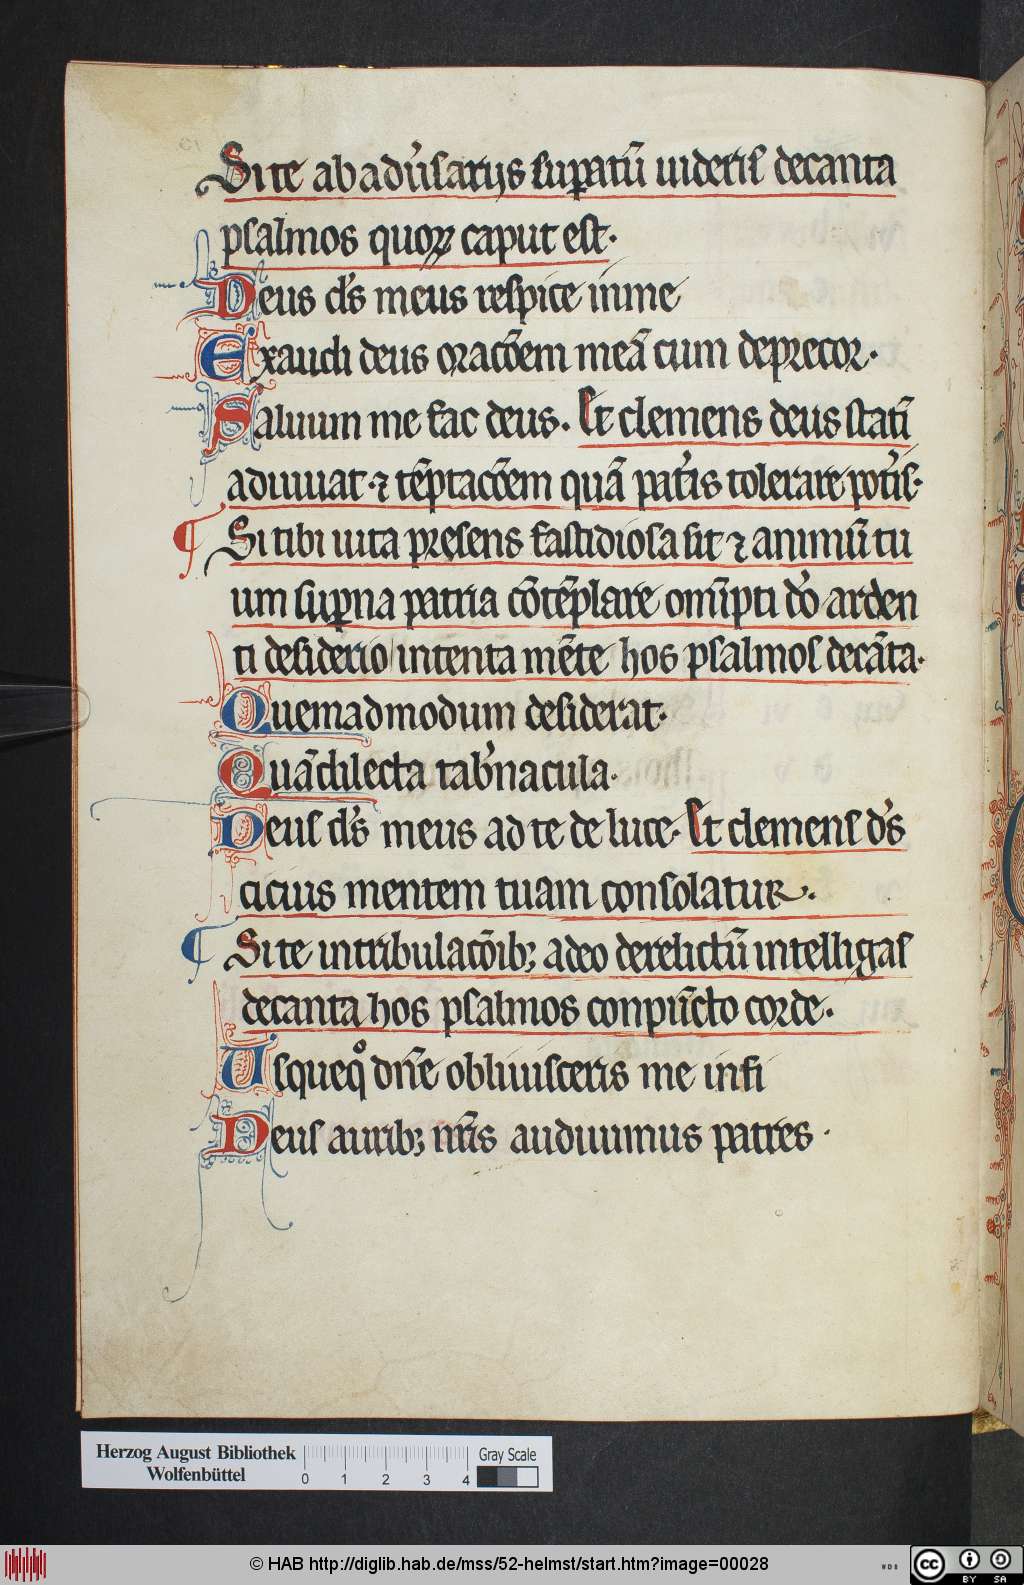 Si te ab adu̕sarijs sup̲atū uideris decanta
psalmos quoꝝ caput est·
Deus ds̄ meus respice in me
Exaudi deus orac̄oem meā cum deprecor·
Saluum me fac deus. Et clemens deus statī
adiuuat· ⁊ tēptac̄oem quā pat̕is tolerare pot̕is·
¶ Si tibi uita presens fastidiosa sit ⁊ animū tu
um sup̲na patria cōtēplare om̄ipti dō arden
ti desiderio intenta mēte hos psalmos decāta·
Quemadmodum desiderat·
Quā dilecta tab̕nacula·
Deus ds̄ meus ad te de luce· Et clemens ds̄
cicius mentem tuam consolatur·
¶ Si te in tribulac̄oibꝫ a deo derelictū intelligas
decanta hos psalmos conpūcto corde·
Usqueqͦ dn̄e obliuisceris me in fi
Deus auribꝫ nr̄is audiuimus patres ·
Herzog August Bibliothek
Wolfenbüttel
0 1 2 3 4
Gray Scale
© HAB http://diglib.hab.de/mss/52-helmst/start.htm?image=00028
WDB
cc BY SA